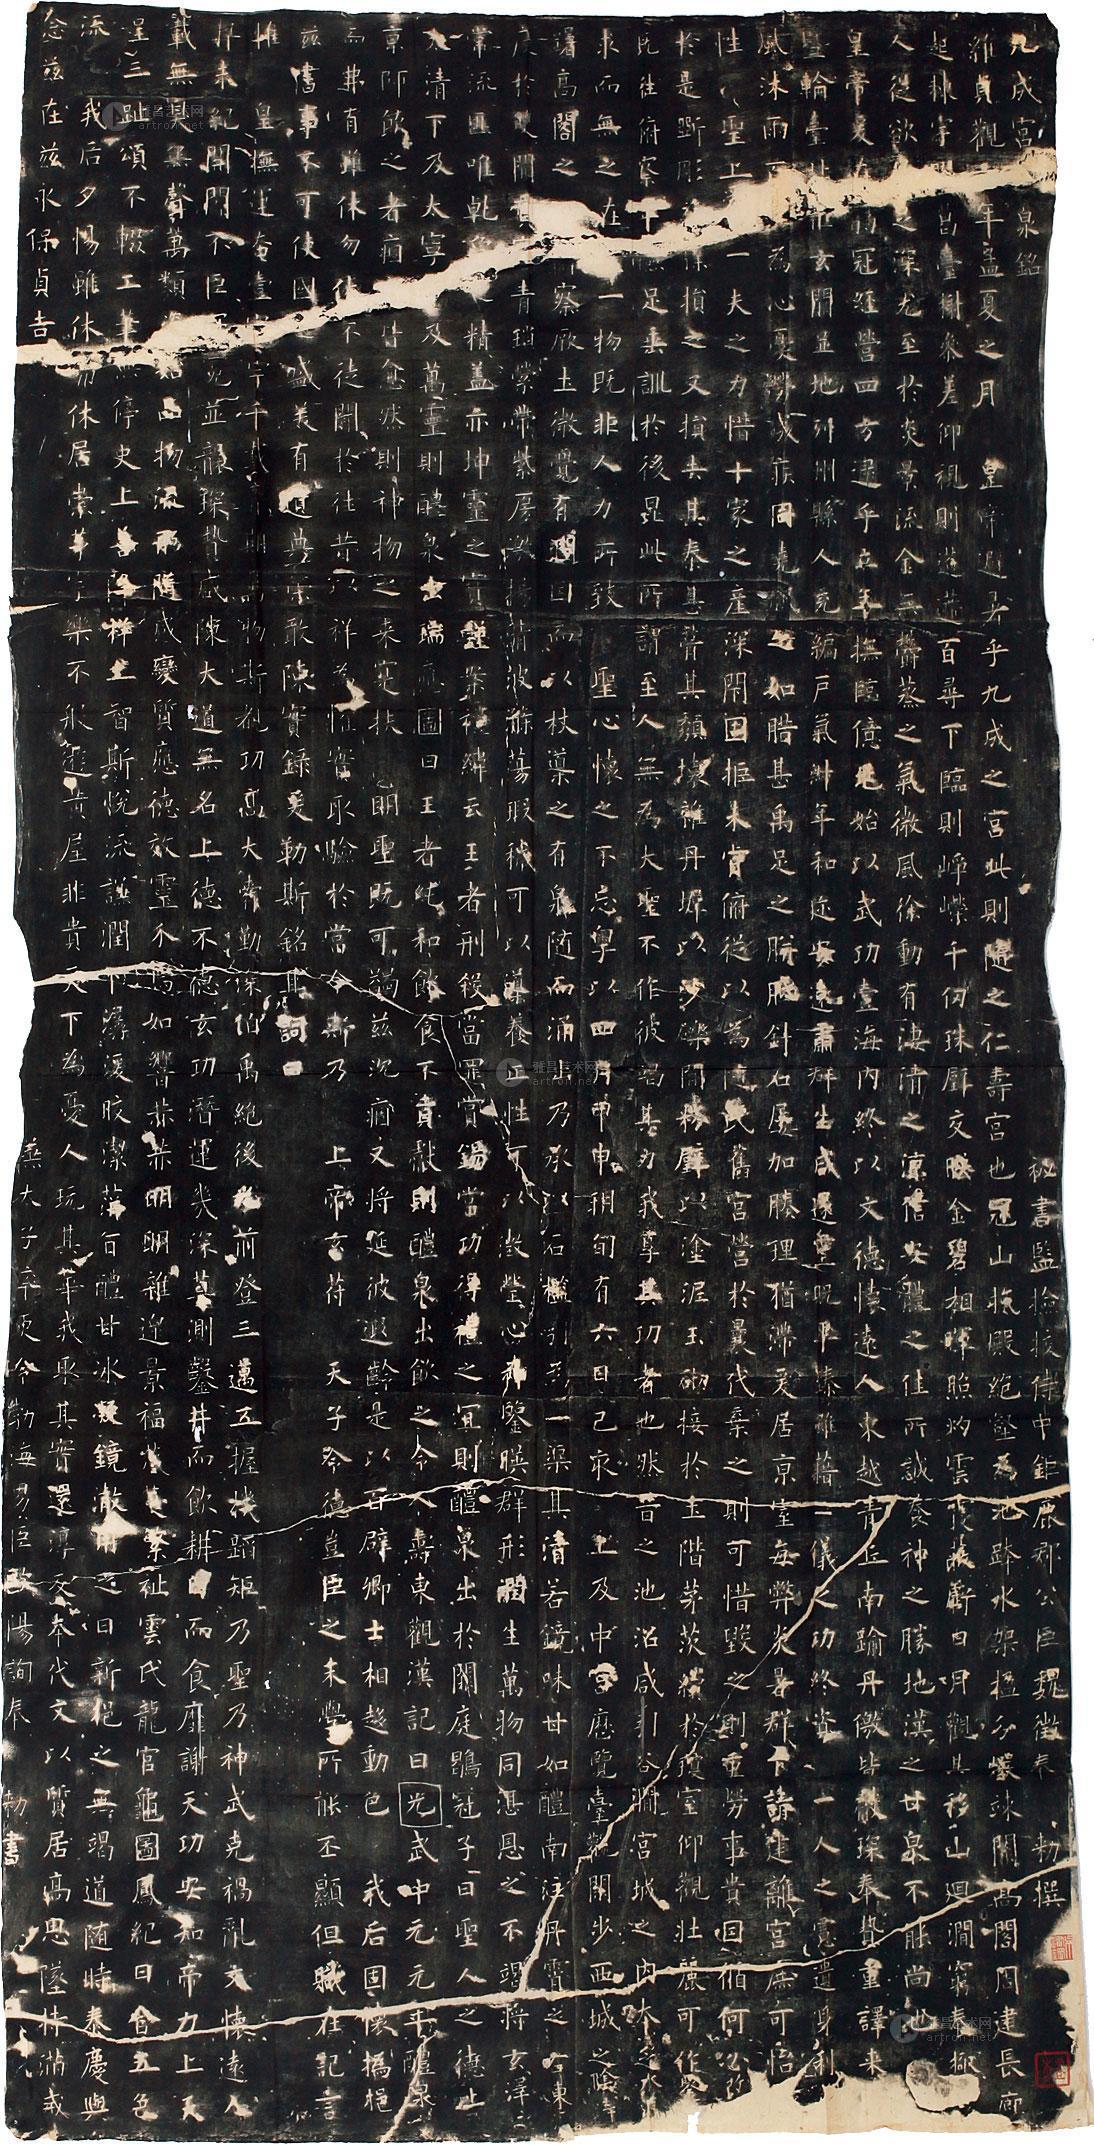 九成宮泉銘 秘書監檢校侍中鉅鹿郡公臣魏徵奉 勑撰
維貞觀年孟夏之月 皇帝避暑乎九成之宮此則隨之仁壽宮也冠山抗殿絕壑為池跨水架楹分巖竦闕高閣周建長廊
起棟宇臺榭參差仰視則迢遰百尋下臨則崢嶸千仞珠璧交映金碧相暉照灼雲霞蔽虧日月觀其移山迴澗窮泰極
人從欲深尤至於炎景流金無鬱蒸之氣微風徐動有淒清之涼信安體之佳所誠養神之勝地漢之甘泉不能尚也
皇帝爰在弱冠經營四方逮乎立年撫臨億兆始以武功壹海內終以文德懷遠人東越青丘南踰丹徼皆獻琛奉贄重譯來
暨輪臺北拒玄闕並地列州縣人充編戶氣淑年和邇安遠肅群生咸遂靈貺畢臻雖藉二儀之功終資一人之慮遺身利
風沐雨為心憂勞成疾同堯肌之如腊甚禹足之胼胝針石屢加腠理猶滯爰居京室每弊炎暑群下請建離宮庶可怡
性 聖上一夫之力惜十家之產深閉固拒未肯俯從以為隨氏舊宮營於曩代棄之則可惜毀之則重勞事貴因循何必改
於是斵彫損之又損去其泰甚葺其頹壞雜丹墀以沙礫間粉壁以塗泥玉砌接於土階茅茨續於瓊室仰觀壯麗可作鑒
既往俯察卑足垂訓於後昆此所謂至人無為大聖不作彼竭其力我享其功者也然昔之池沼咸引谷澗宮城之內本乏水
求而無之在一物既非人力所致 聖心懷之不忘粵以四月甲申朔旬有六日己亥 上及中宮歷覽臺觀閑步西城之陰
躇高閣之察厥土微覺有潤因而以杖導之有泉隨而涌出乃承以石檻引為一渠其清若鏡味甘如醴南注丹霄之右東
度於雙闕貫青瑣縈帶紫房激揚清波滌蕩瑕穢可以導養正性可以澂瑩心神鑒映群形潤生萬物同湛恩之不竭將玄澤之
常流匪唯乾象之精蓋亦坤靈之寶謹案禮緯云王者刑殺當罪賞錫當功得禮之宜則醴泉出於闕庭鶡冠子曰聖人之德上
太清下及太寧及萬靈則醴泉出瑞應圖曰王者純和飲食不貢獻則醴泉出飲之令人壽東觀漢記曰光武中元元年醴泉
京師飲之者痼皆愈然則神物之來寔扶明聖既可蠲茲沉痼又將延彼遐齡是以百辟卿士相趨動色 我后固懷撝挹
而弗有雖休勿休不徒聞於往昔以祥為懼實取驗於當今斯乃 上帝玄符 天子令德豈臣之末學所能丕顯但職在記言
茲書事不可使國之盛美有遺典策敢陳實錄爰勒斯銘其詞曰
惟 皇撫運奄壹宇千載期萬物斯覩功高大舜勤深伯禹絕後光前登三邁五握機蹈矩乃聖乃神武克禍亂文懷遠人
書未紀開闢不臣冠冕並襲琛贄咸陳大道無名上德不德玄功潛運幾深莫測鑿井而飲耕田而食靡謝天功安知帝力上天
載無臭無聲萬類資始品物流形隨感變質應德效靈介焉如響赫赫明明雜遝景福葳蕤繁祉雲氏龍官龜圖鳳紀日含五色
呈三趾頌不輟工筆無停史上善降祥上智斯悅流謙潤下潺湲皎潔蓱旨醴甘冰凝鏡澈用之日新挹之無竭道隨時泰慶與
流 我后夕惕雖休弗休居崇茅宇樂不般遊黃屋非貴天下為憂人玩其華我取其實還淳反本代文以質居高思墜持滿戒
念茲在茲永保貞吉 兼太子率更令勃海男臣歐陽詢奉 勑書
雅昌艺术网
artron.net
雅昌艺术网
artron.net
雅昌艺术网
artron.net